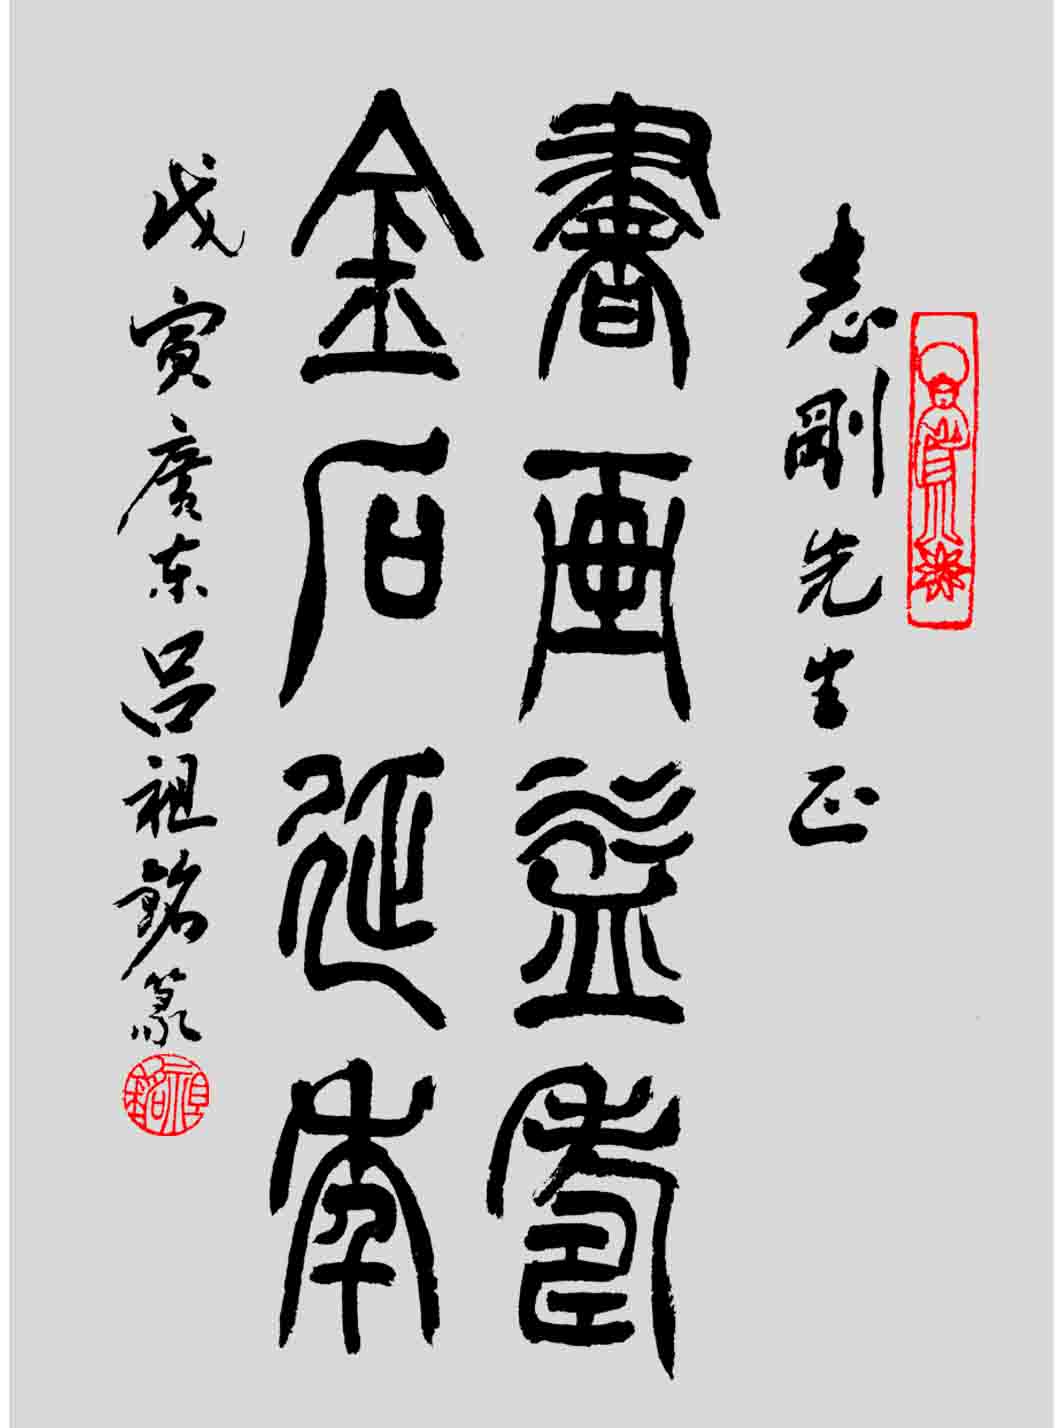 志剛先生正
書画益壽
金石延年
戊寅廣东吕祖銘篆